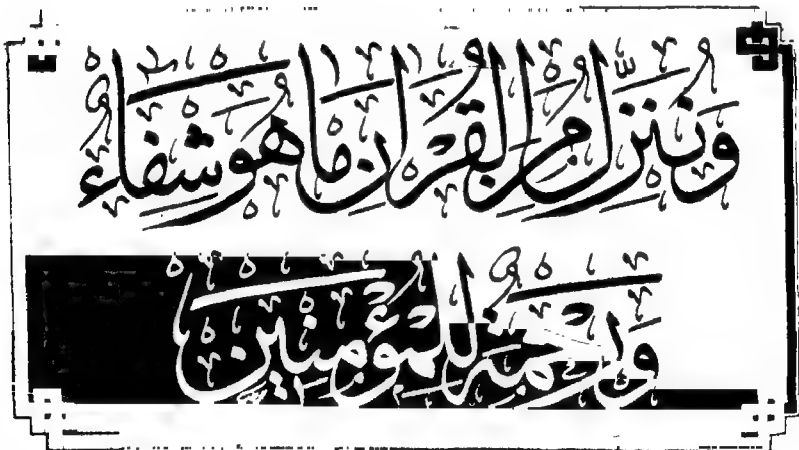 وَنُنَزِّلُ مِنَ الْقُرْآنِ مَا هُوَ شِفَاءٌ
وَرَحْمَةٌ لِّلْمُؤْمِنِينَ